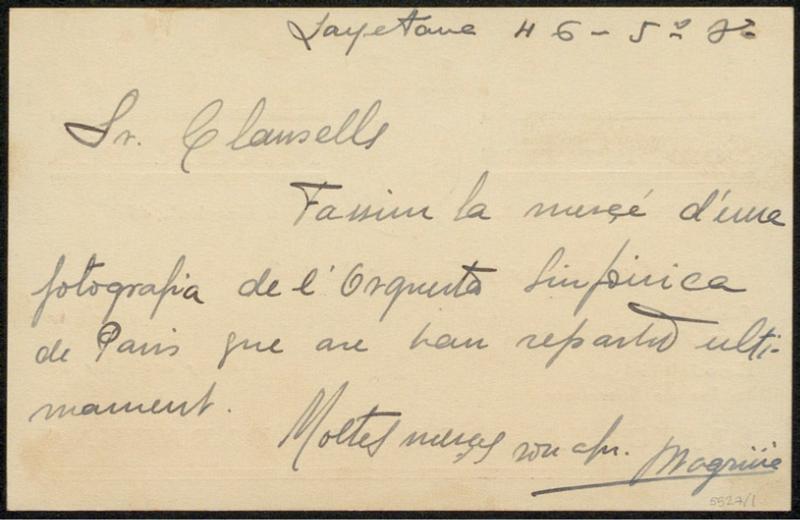 Layetana 46 - 5º 2ª
Sr. Clausells
Fassin la merçé d'una
fotografia de l'Orquesta Sinfónica
de Paris que are han repartit ulti-
mament.
Moltes merçes son afm. Magriñá
5527/1